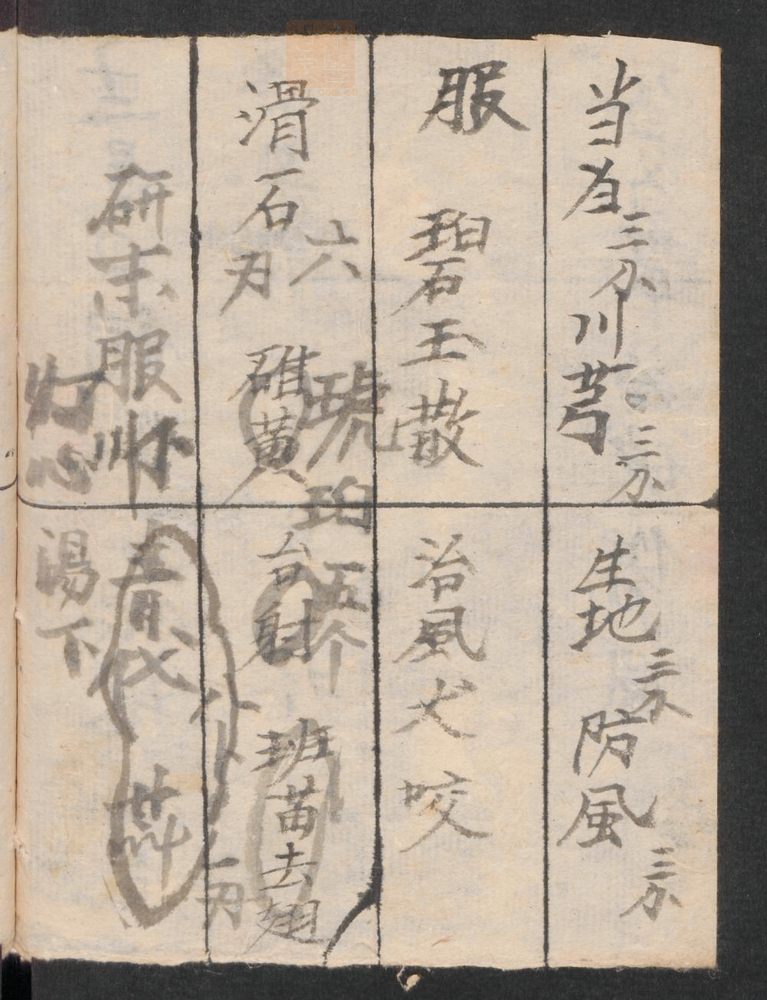 当归三分川芎三分生地三分防風三分
服 碧玉散 治風犬咬
滑石 碓黄 台射 班苗去翅
六 琥珀五个
研末服
青代
灯心湯下